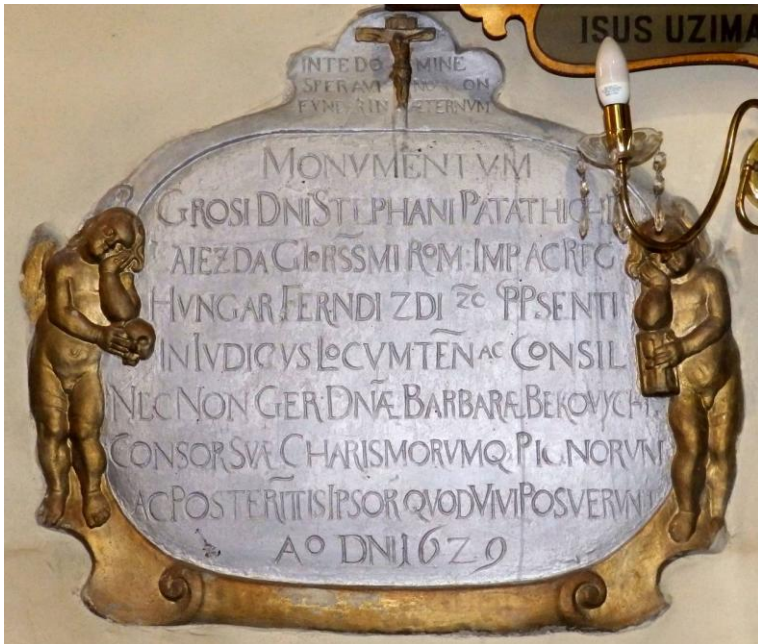 ISUS UZIMA
IN TE DO MINE
SPERAVI NON CON
FVNDAR IN ÆTERNVM
MONVMENTVM
GROSI DNI STEPHANI PATATHICHII
A IEZDA GLORSSMI ROM·IMP AC REG
HVNGAR FERNDI ZDI zc PPSENTI
IN IVDICVS LOCVMTEN AC CONSIL
NEC NON GER·DNÆ BARBARÆ BEKOVYCH
CONSOR SVÆ CHARISMORVMQ PIGNORVM
AC POSTERITIS IPSOR QVOD VIVI POSVERVNT
Ao DNI 1629